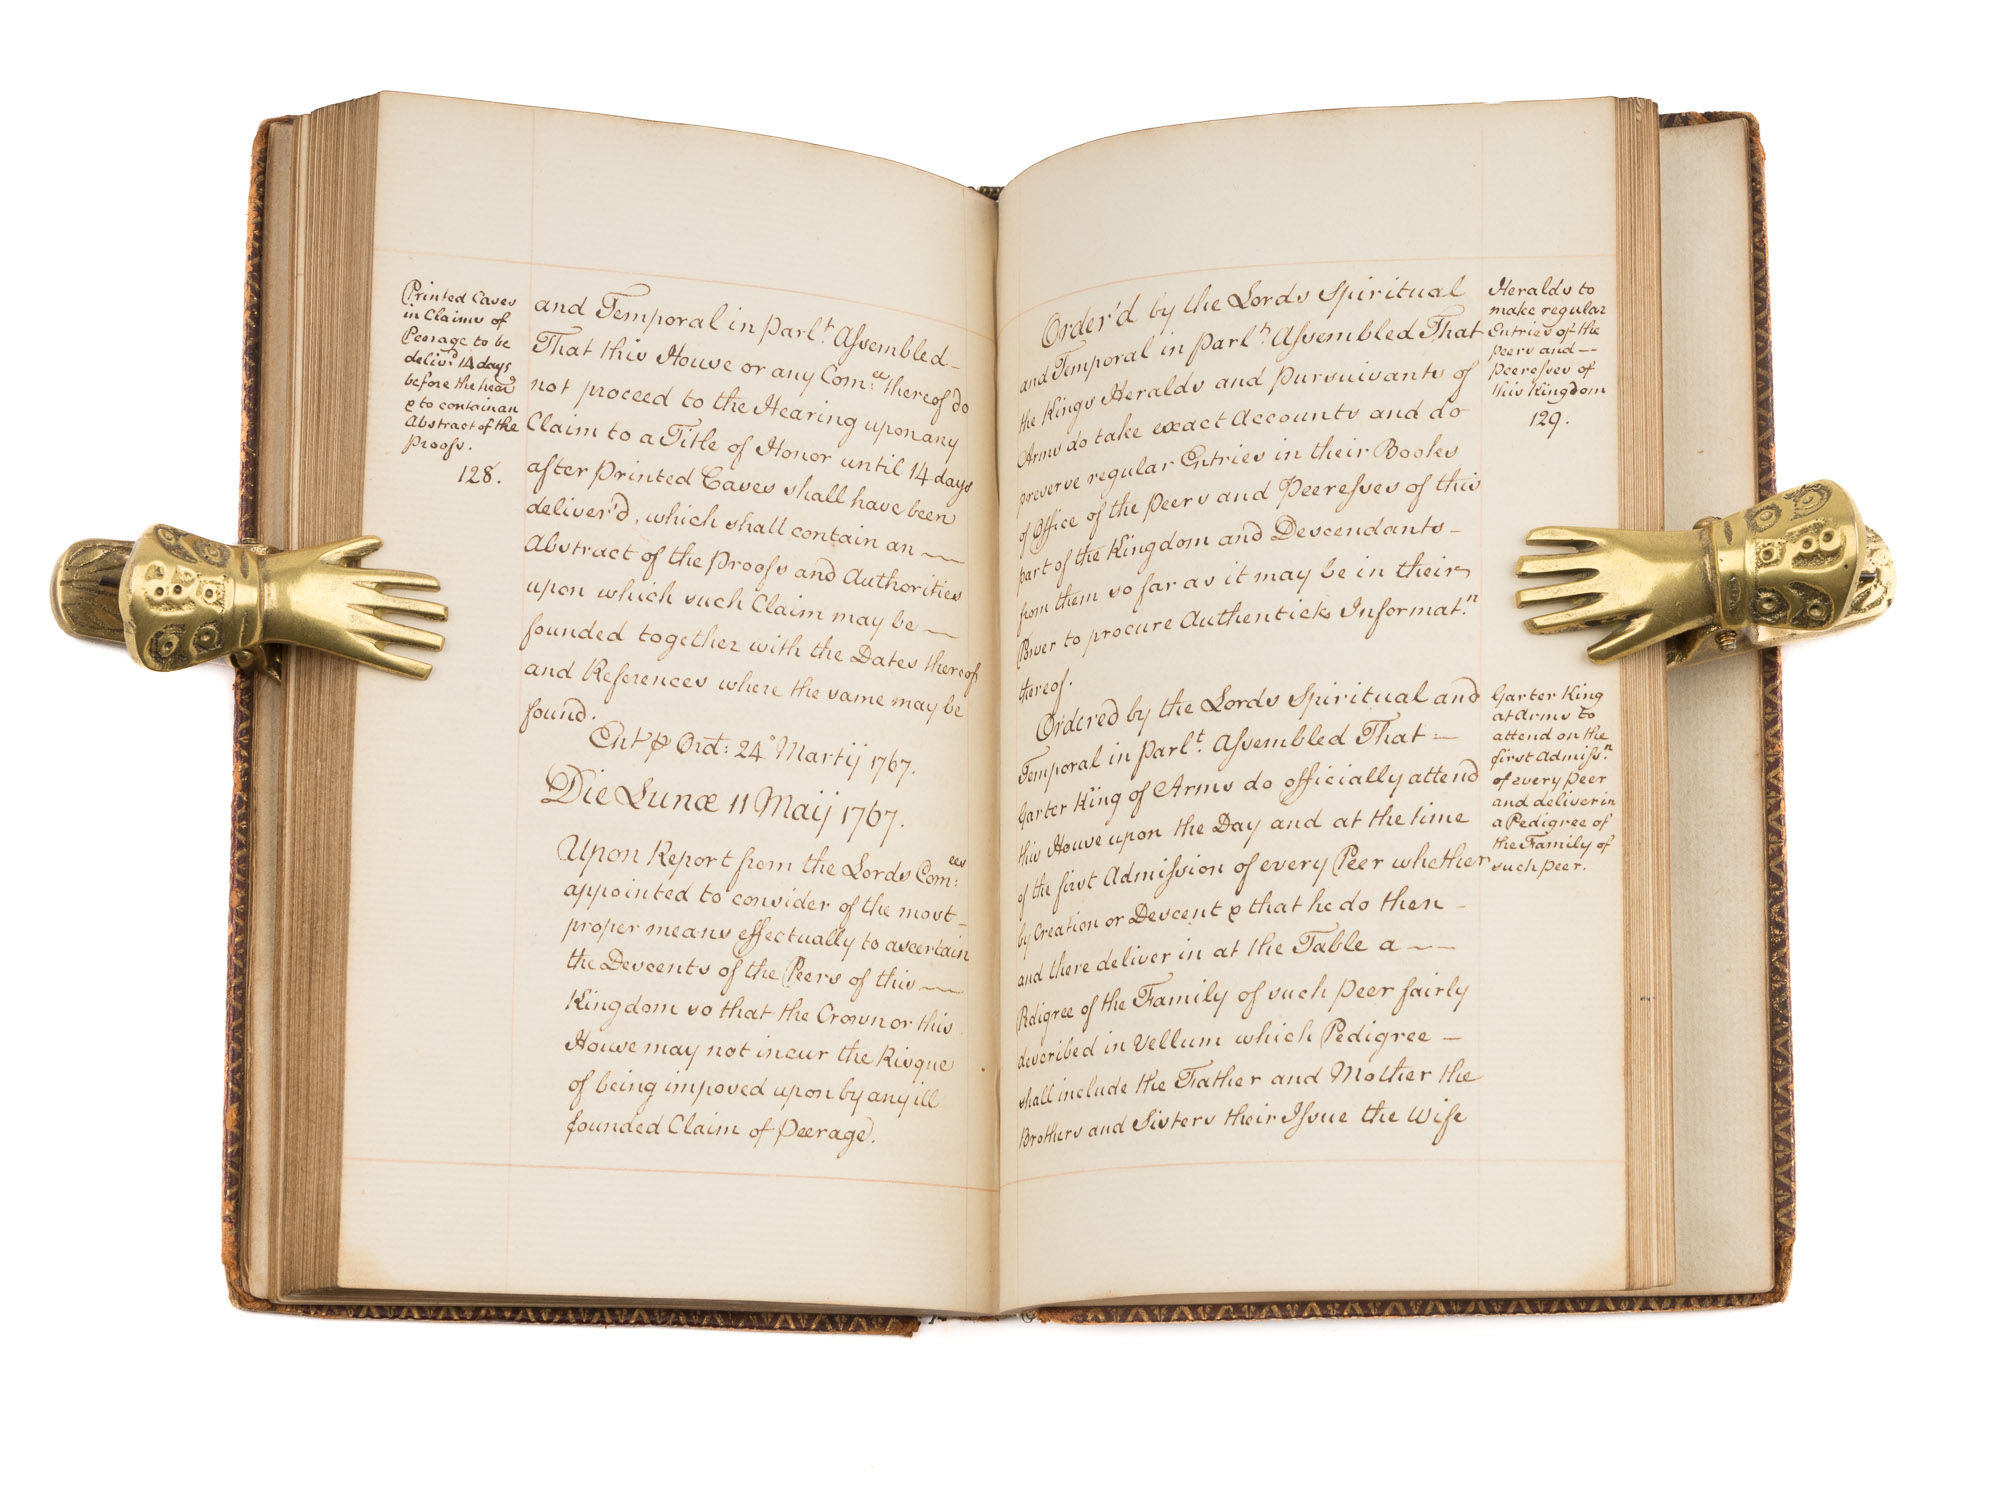 Printed Cases
in Claims of
Peerage to be
deliv:d 14 days
before the hear
& to contain an
Abstract of the
Proofs.
128.
and Temporal in Parl:t Assembled
That this House or any Com:ee thereof do
not proceed to the Hearing upon any
Claim to a Title of Honor until 14 days
after Printed Cases shall have been
deliver'd, which shall contain an
Abstract of the Proofs and Authorities
upon which such Claim may be
founded together with the Dates thereof
and References where the same may be
found.
Ent:d Ord: 24° Martij 1767.
Die Lunæ 11 Maij 1767.
Upon Report from the Lords Com:ees
appointed to consider of the most
proper means effectually to ascertain
the Descents of the Peers of this
Kingdom so that the Crown or this
House may not incur the Risque
of being imposed upon by any ill
founded Claim of Peerage.
Order'd by the Lords Spiritual
and Temporal in Parl:t Assembled That
the Kings Heralds and Pursuivants of
Arms do take exact Accounts and do
preserve regular Entries in their Books
of Office of the Peers and Peeresses of this
part of the Kingdom and Descendants
from them so far as it may be in their
Power to procure Authentick Informat:n
thereof.
Ordered by the Lords Spiritual and
Temporal in Parl:t Assembled That
Garter King of Arms do officially attend
this House upon the Day and at the time
of the first Admission of every Peer whether
by Creation or Descent & that he do then
and there deliver in at the Table a
Pedigree of the Family of such Peer fairly
described in Vellum which Pedigree
shall include the Father and Mother the
Brothers and Sisters their Issue the Wife
Heralds to
make regular
Entries of the
Peers and
Peeresses of
this Kingdom
129.
Garter King
at Arms to
attend on the
first Admiss:n
of every Peer
and deliver in
a Pedigree of
the Family of
such Peer.